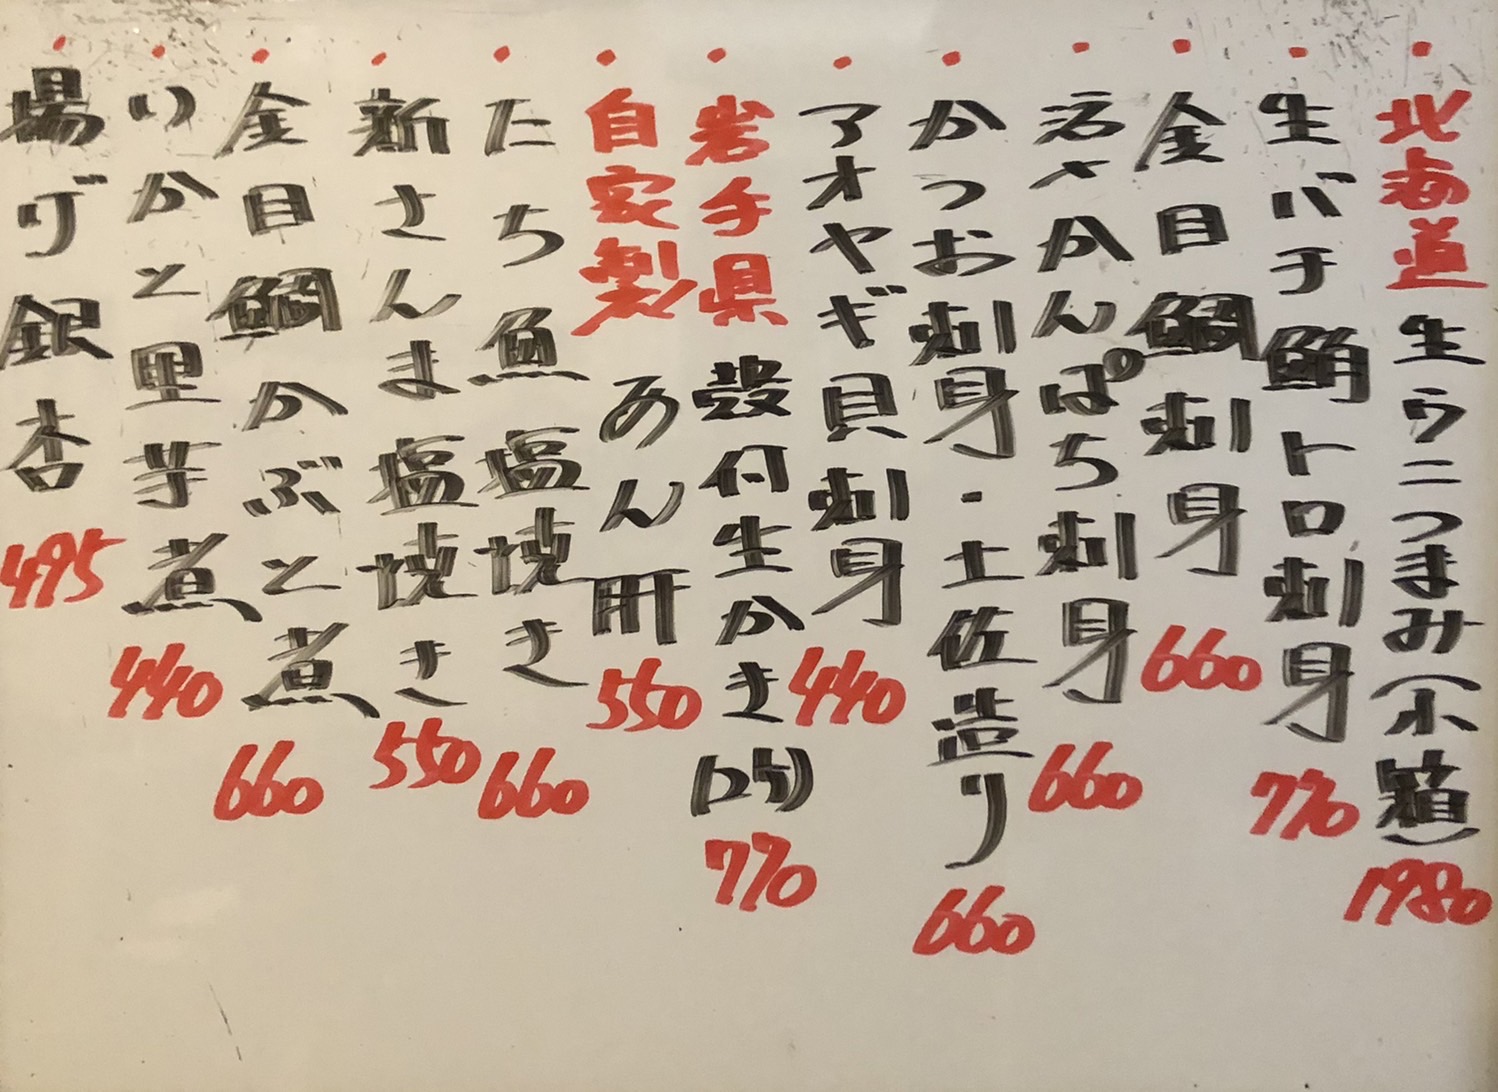 ・北海道 生ウニつまみ(小箱) 1980
・生バチ鮪トロ刺身 770
・金目鯛刺身 660
・活〆かんぱち刺身 660
・かつお刺身・土佐造り 660
・アオヤギ貝刺身 440
・岩手県 殻付生かき(2ヶ) 770
・自家製 あん肝 550
・たち魚塩焼き 660
・新さんま塩焼き 550
・金目鯛かぶと煮 660
・いかと里芋煮 440
・揚げ銀杏 495